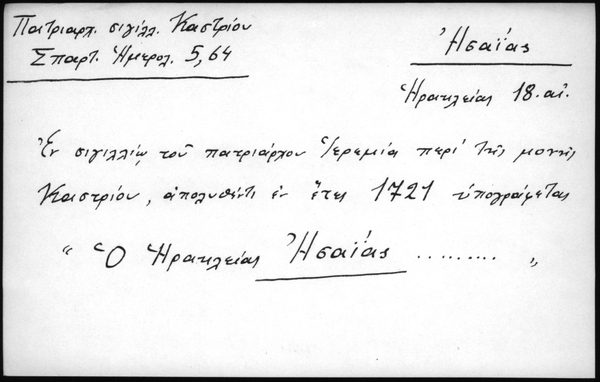 Πατριαρχ. σιγίλλ. Καστρίου
Σπαρτ. Ἡμερολ. 5, 64
Ἠσαΐας
Ἡρακλείας 18. αἰ.
Ἐν σιγιλλίῳ τοῦ πατριάρχου Ἱερεμία περί τῆς μονῆς
Καστρίου, ἀπολυθέντι ἐν ἔτει 1721 ὑπογράφεται
" Ὁ Ἡρακλείας Ἠσαΐας .......... "